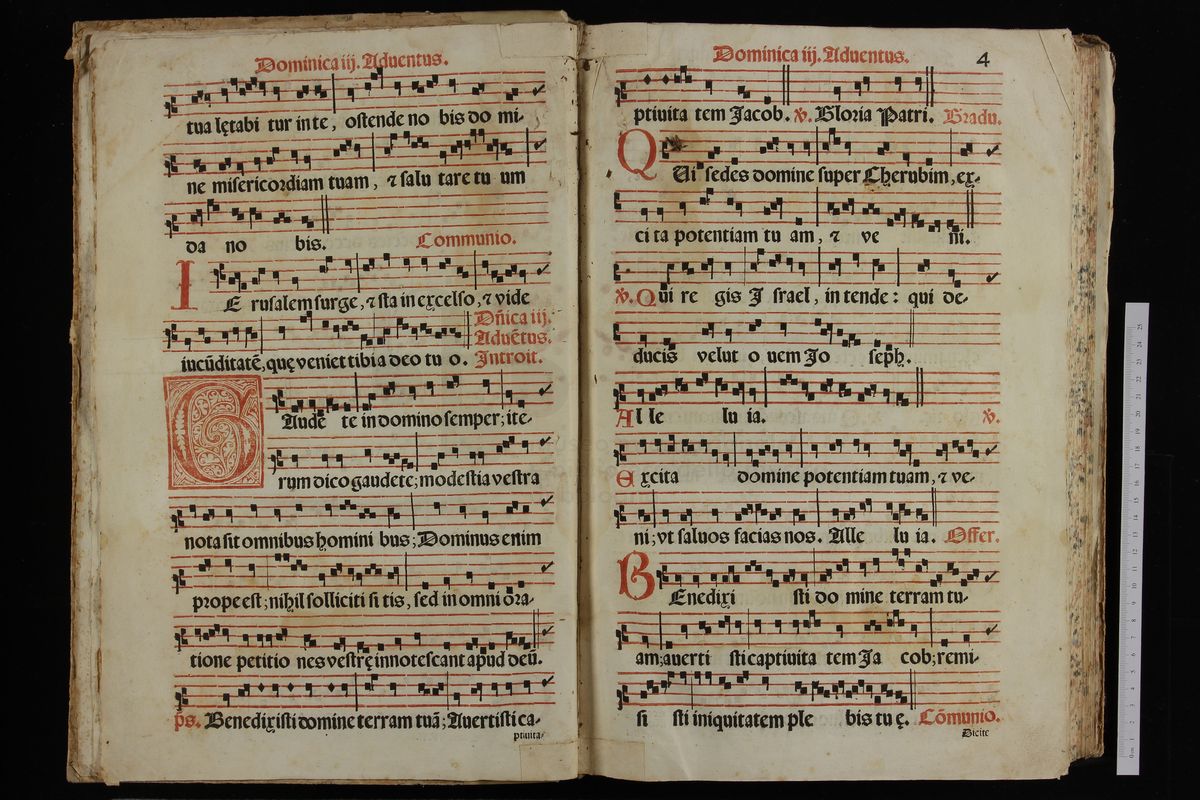 Dominica iij. Aduentus.
tua lętabi tur in te, ostende no bis do mi-
ne misericordiam tuam, ⁊ salu tare tu um
da no bis. Communio.
IE rusalem surge, ⁊ sta in excelso, ⁊ vide
Dñica iij.
Aduẽtus.
iucũditatẽ, quę veniet tibi a deo tu o. Introit.
GAude te in domino semper; ite-
rum dico gaudete; modestia vestra
nota sit omnibus homini bus; Dominus enim
prope est; nihil solliciti si tis, sed in omni ora-
tione petitio nes vestrę innotescant apud deũ.
ps. Benedixisti domine terram tuã; Auertisti ca-
ptiuita-
Dominica iij. Aduentus. 4
ptiuita tem Jacob. ℣. Gloria Patri. Gradu.
QUi sedes domine super Cherubim, ex-
ci ta potentiam tu am, ⁊ ve ni.
℣. Qui re gis I srael, in tende: qui de-
ducis velut o uem Jo seph.
Al le lu ia. ℣.
Excita domine potentiam tuam, ⁊ ve-
ni; vt saluos facias nos. Alle lu ia. Offer.
BEnedixi sti do mine terram tu-
am; auerti sti captiuita tem Ja cob; remi-
si sti iniquitatem ple bis tu ę. Cõmunio.
Dicite